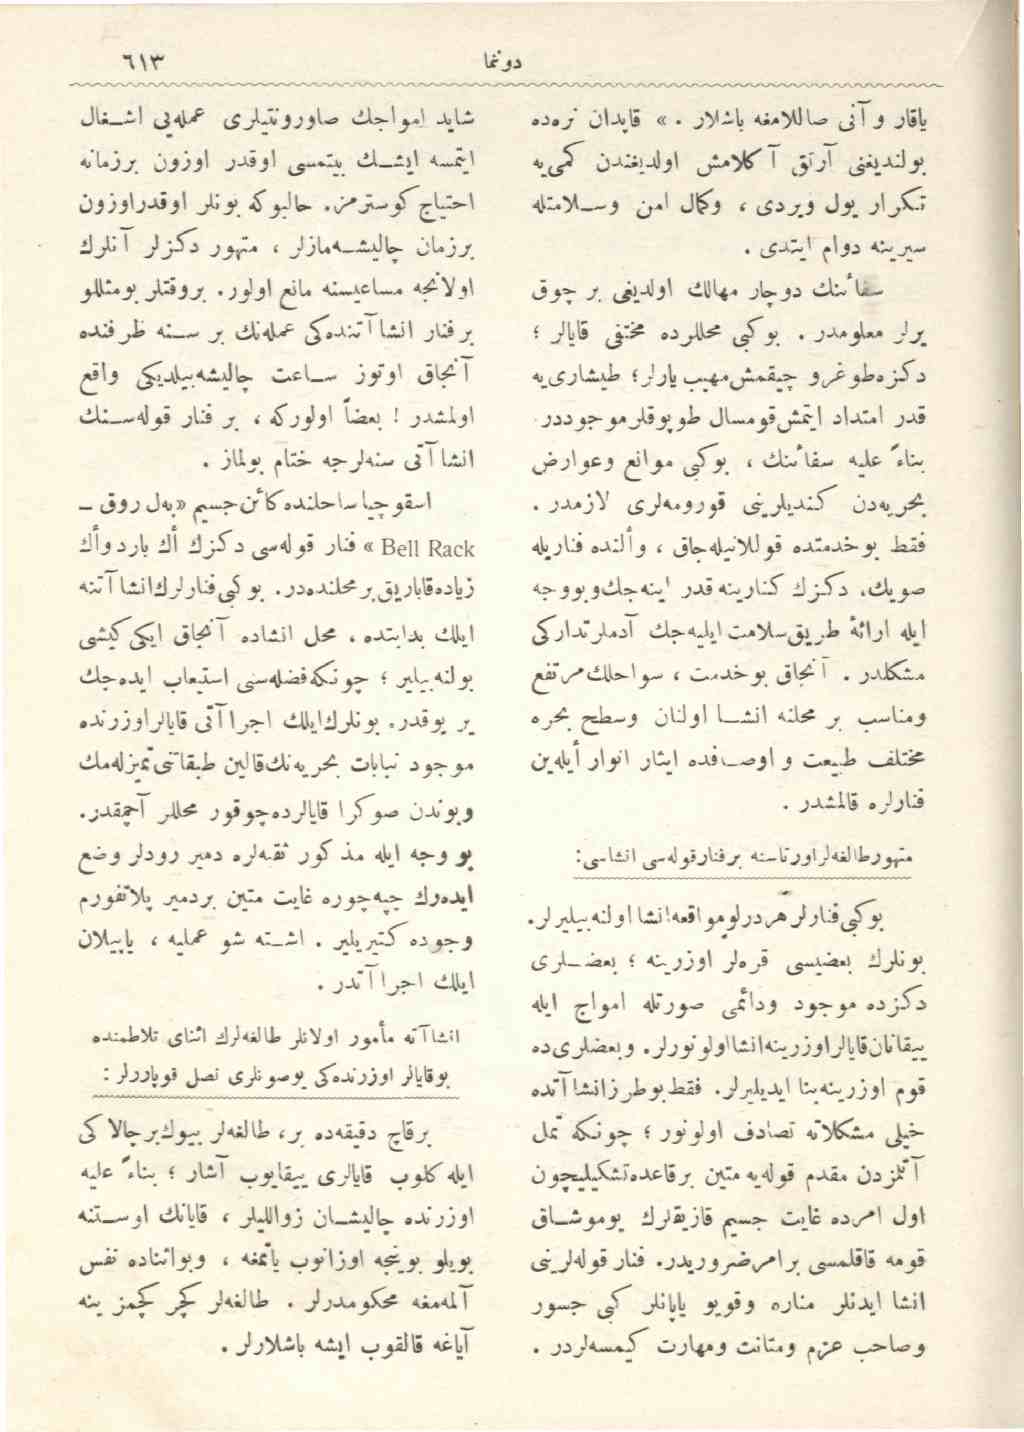 دوننما
٦١٣
ياقار و آنى صاللامغه باشلار . » قايدان نره‌ده
بولنديغنى آرتق آكلامش اولديغندن كمى‌يه
تكرار يول ويردى ، وكمال امن وسلامتله
سيرينه دوام ايتدى .
سفائنك دوچار مهالك اولديغى بر چوق
يرلر معلومدر . بوكبى محللرده مختفى قايالر ؛
دكزه‌طوغرو چيقمش‌مهيب يارلر؛ طيشارى‌يه
قدر امتداد ايتمش‌قومسال طوپوقلرموجوددر
بناءً عليه سفائنك ، بوكبى موانع وعوارض
بحريه‌دن كنديلرينى قورومه‌لرى لازمدر .
فقط بوخدمتده قوللانيله‌جاق ، وألنده فناريله
صويك، دكزك كنارينه قدر اينه‌جك‌وبووجه
ايله ارائۀ طريق‌سلامت ايليه‌جك آدملرتداركى
مشكلدر . آنجاق بوخدمت ، سواحلك‌مرتفع
ومناسب بر محلنه انشا اولنان وسطح بحره
مختلف طبيعت و اوصافده ايثار انوار أيله‌ين
فنارلره قالمشدر .
متهورطالغه‌لراورتاسنه برفنارقوله‌سى انشاسى:
بوكبى‌فنارلر هردرلومواقعه‌انشا اولنه‌بيليرلر.
بونلرك بعضيسى قره‌لر اوزرينه ؛ بعضلرى
دكزده موجود ودائمى صورتله امواج ايله
ييقانان‌قايالراوزرينه‌انشااولونورلر. وبعضلرى‌ده
قوم اوزرينه‌بنا ايديليرلر. فقط‌بوطرزانشاآتده
خيلى مشكلاته تصادف اولونور ؛ چونكه تمل
آتلمزدن مقدم قوله‌يه متين برقاعده‌تشكيليچون
اول امرده غايت جسيم قازيقلرك يوموشاق
قومه قاقلمسى برامرضروريدر. فنار قوله‌لرينى
انشا ايدنلر مناره وقويو ياپانلر كبى جسور
وصاحب عزم ومتانت ومهارت كيمسه‌لردر .
شايد امواجك صاورونتيلرى عمله‌يى اشغال
ايتمسه ايشك بيتمسى اوقدر اوزون برزمانه
احتياج كوسترمز. حالبوكه بونلر اوقدراوزون
برزمان چاليشه‌مازلر ، متهور دكزلر آنلرك
اولانجه مساعيسنه مانع اولور. بروقتلر بومثللو
برفنار انشاآتنده‌كى عمله‌نك بر سنه ظرفنده
آنجاق اوتوز ساعت چاليشه‌بيلديكى واقع
اولمشدر ! بعضاً اولوركه ، بر فنار قوله‌سنك
انشاآتى سنه‌لرجه ختام بولماز .
اسقوچيا ساحلنده كائن جسيم «بەل روق ـ
Bell Rack » فنار قوله‌سى دكزك أك بارد وأك
زياده‌قاباريق برمحلنده‌در. بوكبى‌فنارلرك‌انشاآتنه
ايلك بدايتده ، محل انشاده آنجاق ايكى كيشى
بولنه‌بيلير ؛ چونكه‌فضله‌سنى استيعاب ايده‌جك
ير يوقدر. بونلرك‌ايلك اجراآتى قايالراوزرنده
موجود نباتات بحريه‌نك‌قالين طبقاتنى‌تميزله‌مك
وبوندن صوكرا قايالرده‌چوقور محللر آچمقدر.
بو وجه ايله مذكور ثقبه‌لره دمير رودلر وضع
ايده‌رك چپه‌چوره غايت متين بردمير پلاتفورم
وجوده كتيريلير . اشته شو عمليه ، ياپيلان
ايلك اجراآتدر .
انشاآته مأمور اولانلر طالغه‌لرك اثناى تلاطمنده
بوقايالر اوزرنده‌كى يوصونلرى نصل قوپاررلر :
برقاچ دقيقه‌ده بر، طالغه‌لر بيوك‌برچالاكى
ايله كلوب قايالرى ييقايوب آشار ؛ بناءً عليه
اوزرنده چاليشان زواللیلر ، قايانك اوستنه
بويلو بوينجه اوزانوب ياتمغه ، وبواثناده نفس
آلمه‌مغه محكومدرلر . طالغه‌لر كچر كچمز ينه
آياغه قالقوب ايشه باشلارلر .